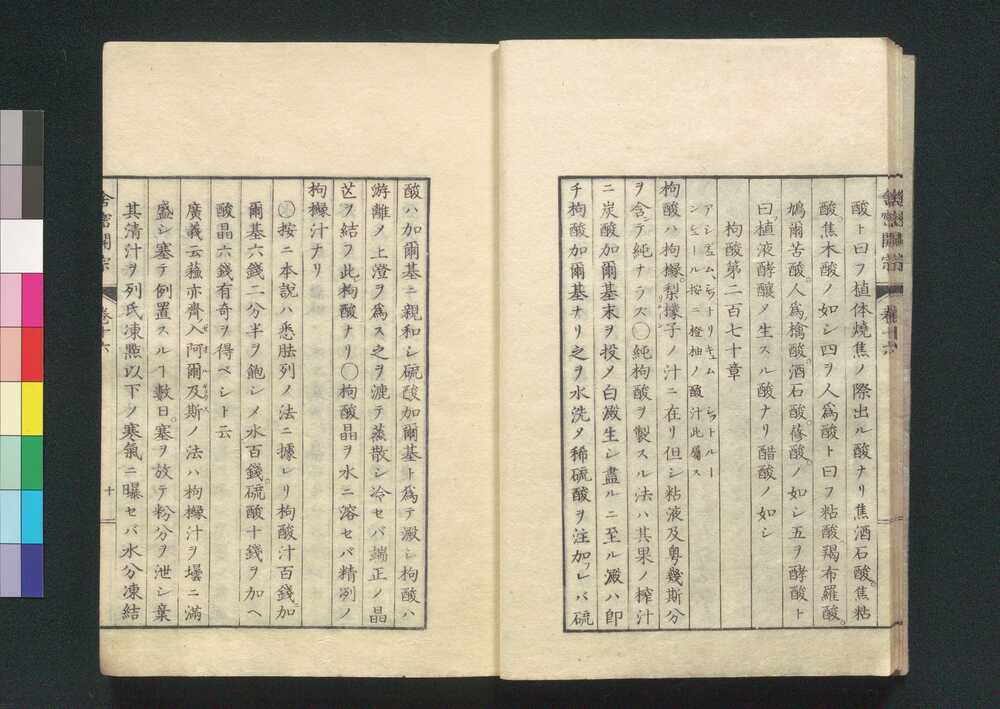 酸ト曰フ植体燒焦ノ際出ル酸ナリ焦酒石酸。焦粘
酸。焦木酸ノ如シ四ヲ人爲酸ト曰フ粘酸。羯布羅酸。
鳩爾苦酸。人爲檎酸。酒石酸。蓚酸。ノ如シ五ヲ酵酸ト
曰。植液酵釀メ生スル酸ナリ醋酸ノ如シ
枸酸第二百七十章
枸酸ハ枸櫞。梨檬子ノ汁ニ在リ但シ粘液及粤幾斯分
ヲ含ンテ純ナラス〇純枸酸ヲ製スル法ハ其果ノ搾汁
ニ炭酸加爾基末ヲ投メ白澱生シ盡ルニ至ル澱ハ即
チ枸酸加爾基ナリ之ヲ水洗メ稀硫酸ヲ注加フレバ硫
舎密開宗
卷十六
酸ハ加爾基ニ親和シ硫酸加爾基ト爲テ澱シ枸酸ハ
游離メ上澄ヲ爲ス之ヲ漉テ蒸散シ冷セバ端正ノ晶
ヲ結フ此枸酸ナリ〇枸酸晶ヲ水ニ溶セバ精冽ノ
枸櫞汁ナリ
按ニ本說ハ悉肱列ノ法ニ據レリ枸酸汁百錢加
爾基六錢二分半ヲ飽シメ水百錢。硫酸十錢ヲ加ヘ
酸晶六錢有奇ヲ得ベシト云
廣義云蘊亦齊入阿爾及斯ノ法ハ枸櫞汁ヲ壜ニ滿
盛シ塞テ倒置スルヿ數日。塞ヲ放テ粉分ヲ泄シ棄
其清汁ヲ列氏凍點以下ノ寒氣ニ曝セバ水分凍結
舎密開宗
卷十六
十